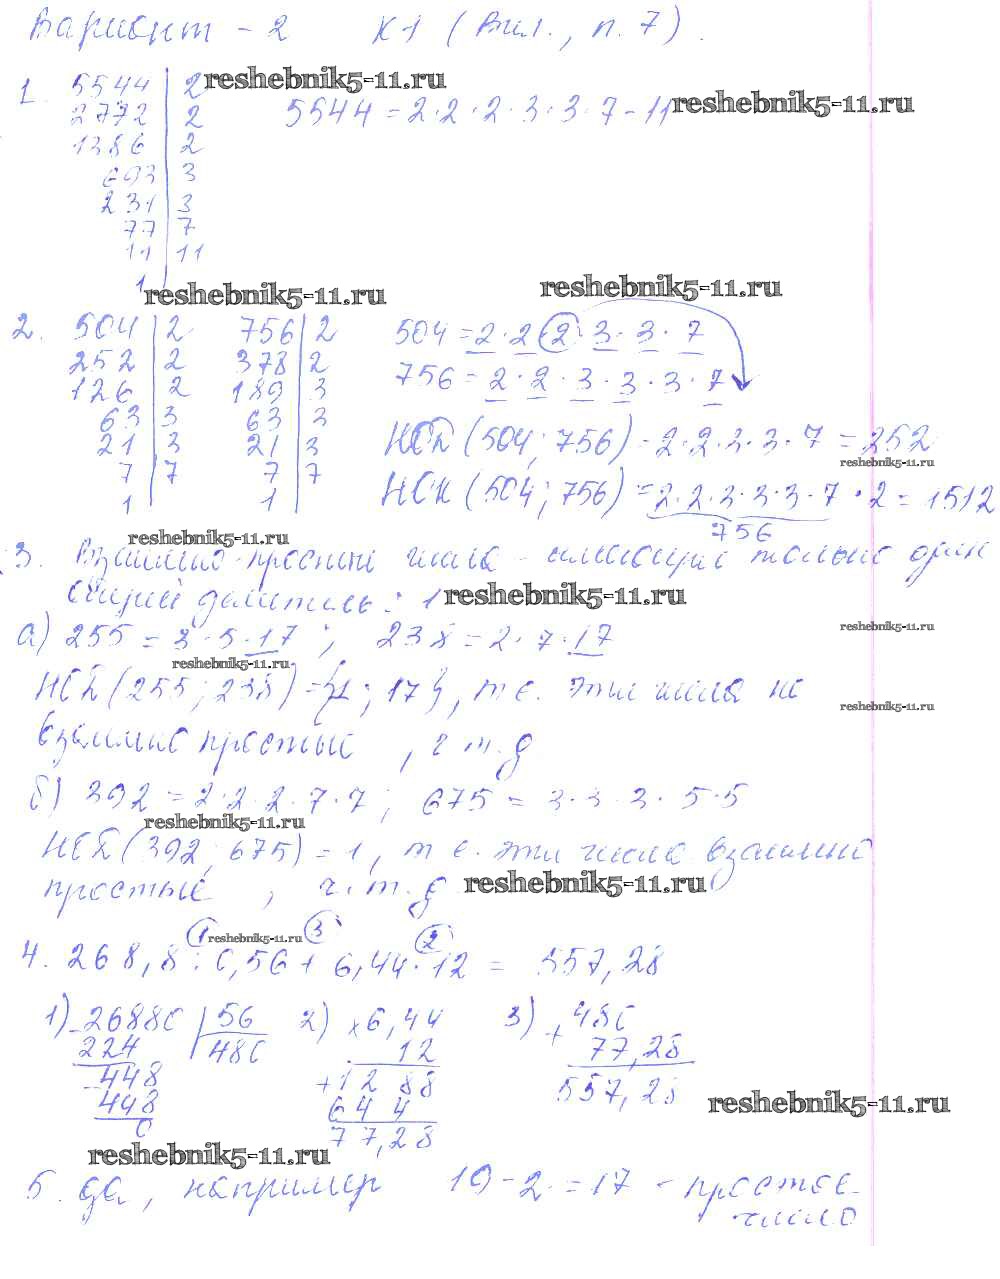 Вариант - 2 К-1 (Вил., п. 7).
reshebnik5-11.ru
1. 5544 | 2 5544 = 2·2·2·3·3·7-11
reshebnik5-11.ru
2772 | 2
1386 | 2
693 | 3
231 | 3
77 | 7
11 | 11
1
reshebnik5-11.ru reshebnik5-11.ru
2. 504 | 2 756 | 2 504 = 2·2·2·3·3·7
252 | 2 378 | 2 756 = 2·2·3·3·3·7
126 | 2 189 | 3
63 | 3 63 | 3 НОД (504; 756) = 2·2·3·3·7 = 252
21 | 3 21 | 3 reshebnik5-11.ru
7 | 7 7 | 7 НОК (504; 756) = 2·2·3·3·3·7·2 = 1512
1 1 756
reshebnik5-11.ru
3. Взаимно-простые числа - имеющие только один
общий делитель: 1 reshebnik5-11.ru
а) 255 = 3·5·17; 238 = 2·7·17 reshebnik5-11.ru
reshebnik5-11.ru
НОД (255; 238) = {1; 17}, т.е. эти числа не reshebnik5-11.ru
взаимно простые, ч т. д
б) 392 = 2·2·2·7·7; 675 = 3·3·3·5·5
reshebnik5-11.ru
НОД (392; 675) = 1, т е. эти числа взаимно
простые, ч. т. д reshebnik5-11.ru
1 reshebnik5-11.ru 3 2
4. 268,8 : 0,56 + 6,44·12 = 557,28
1) -26880 | 56 2) ×6,44 3) +480
224 | 480 12 77,28
-448 +12 88 557,28
448 6 4 4
0 77,28
reshebnik5-11.ru
reshebnik5-11.ru
5. да, например 19 - 2 = 17 - простое
число